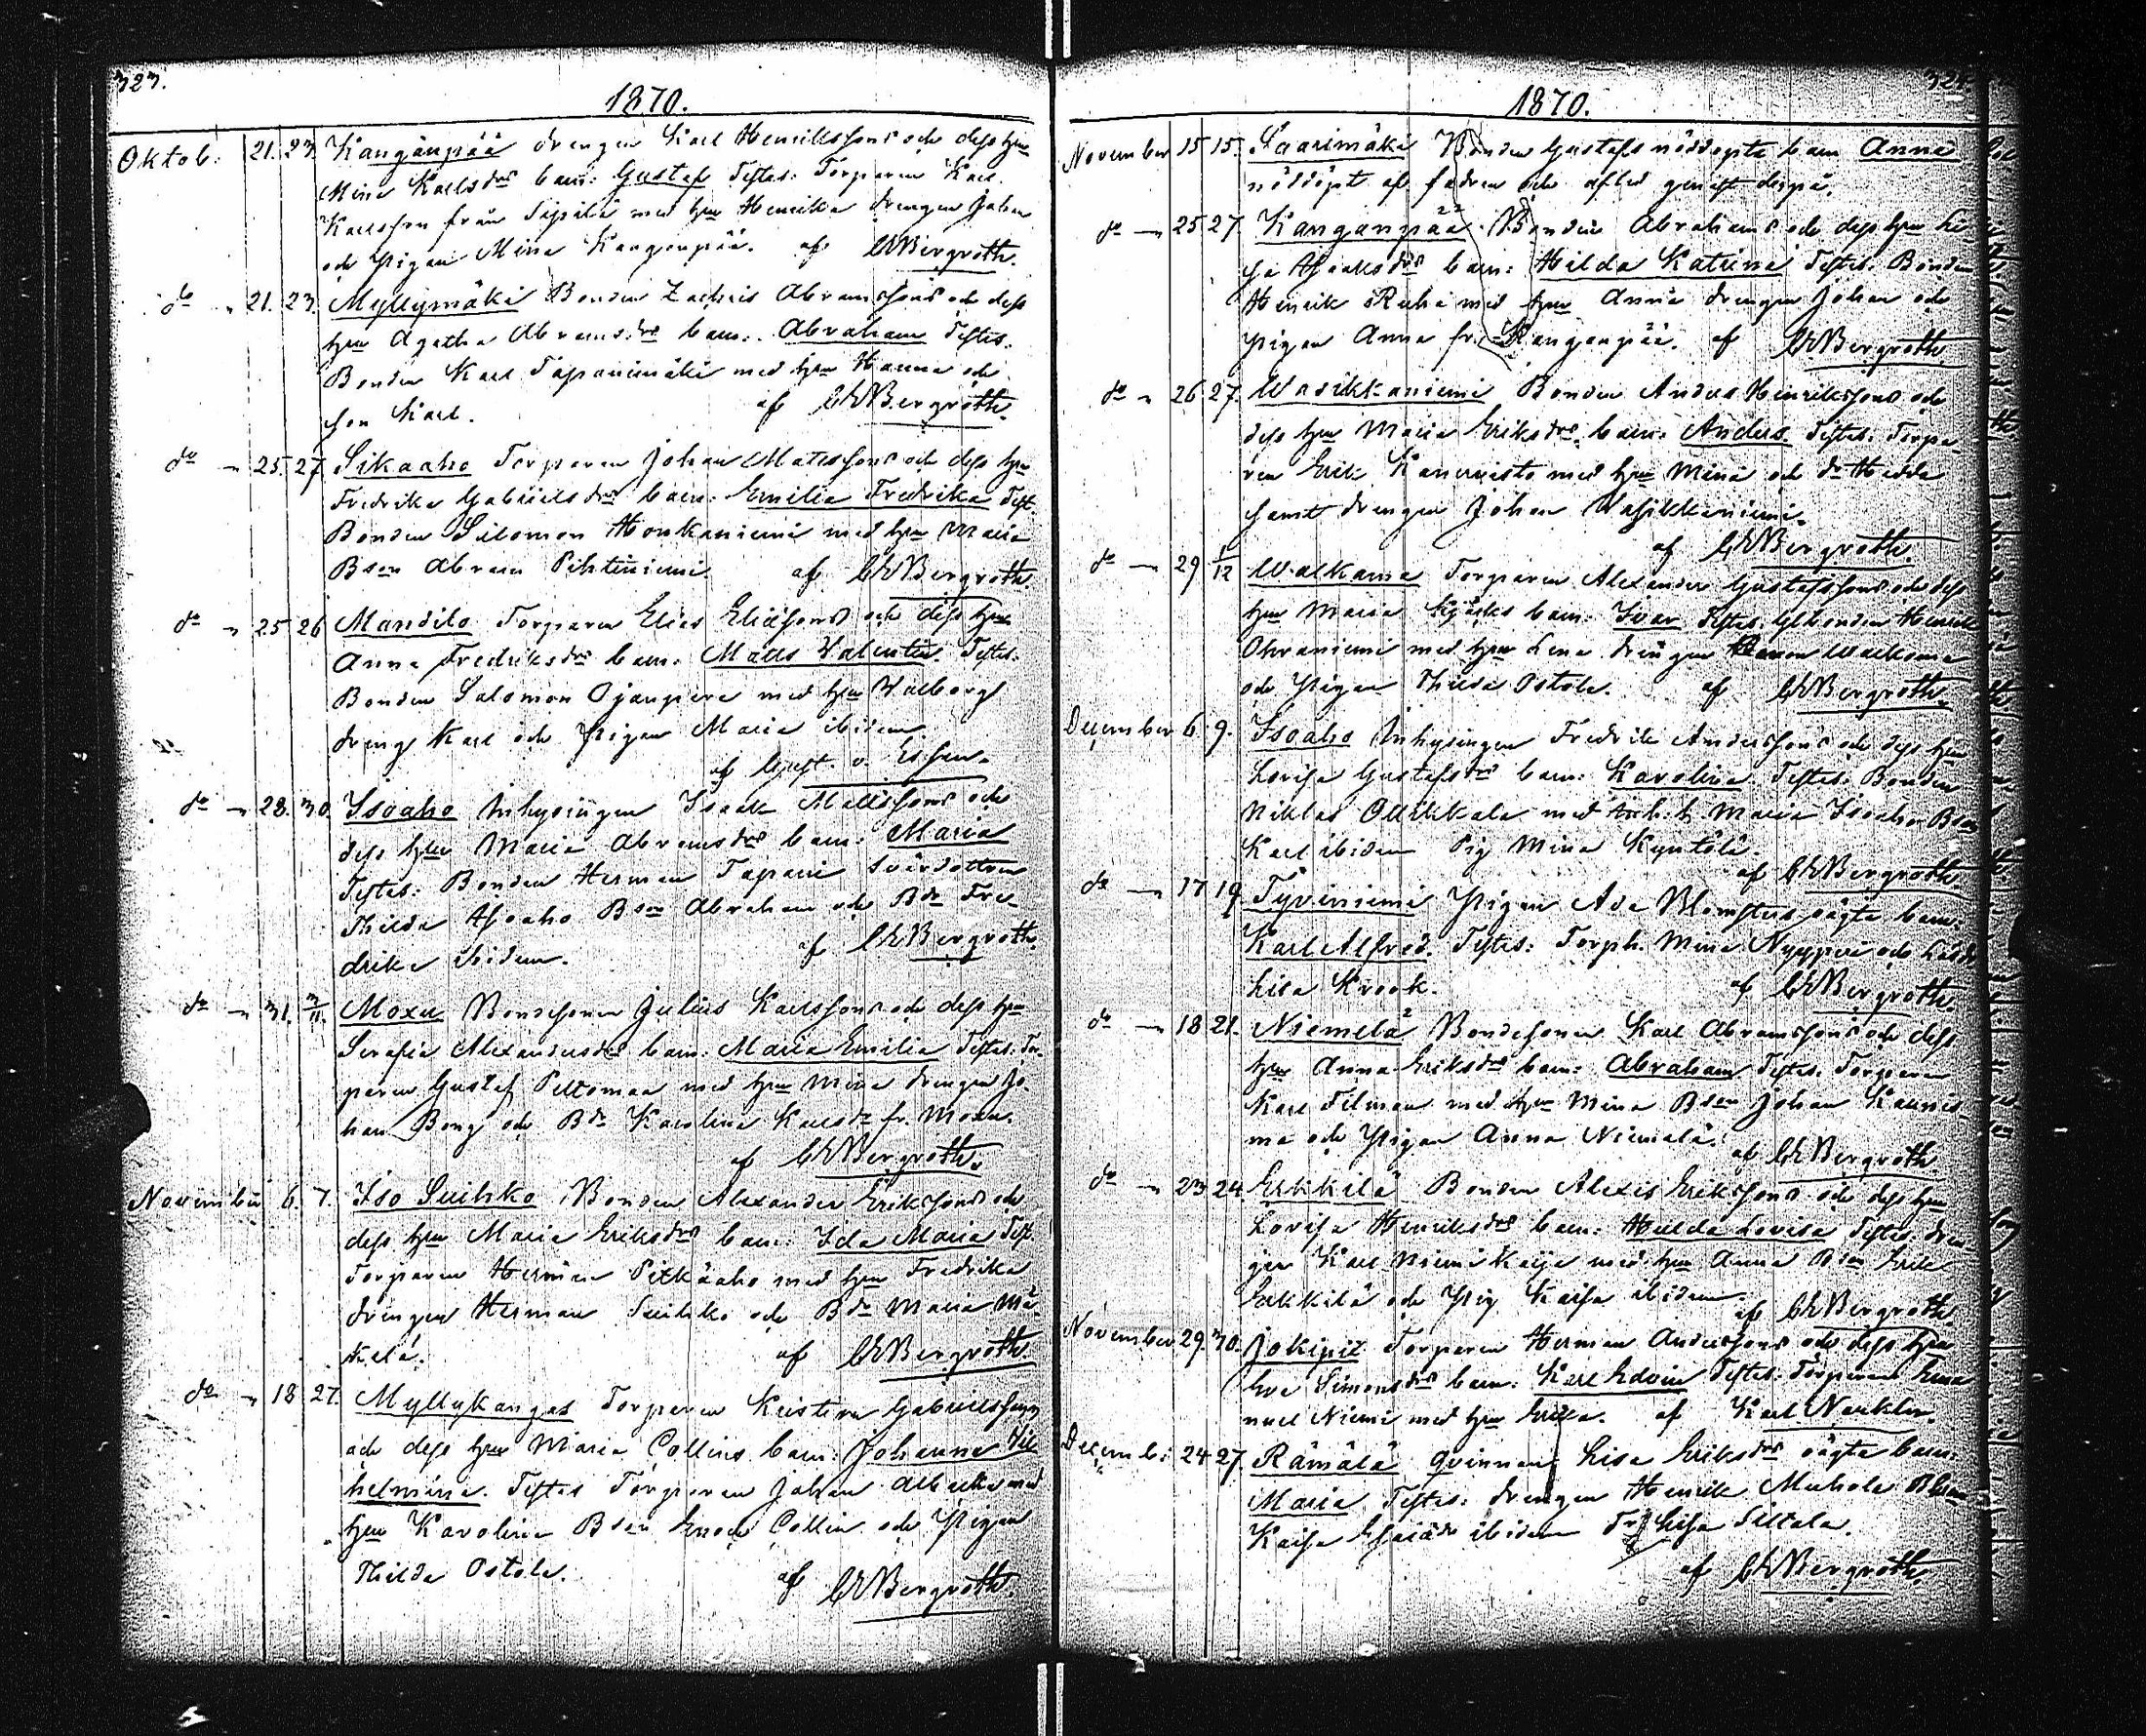 323.
1870.
Oktob: 21. 23. Kangänpää drengen Karl Henrikssons och dess hru
Mina Karlsdrs barn: Gustaf Testes: Torparen Karl
Karlsson från Tapila med hru Henrika drengen Johan
och pigan Mina Kangenpää. af CEBergroth.
do " 21. 23. Myllymäki Bonden Zachris Abramssons och dess
hru Agatha Abramsdrs barn: Abraham Testes:
Bonden Karl Tapanimäki med hru Hanna och
son Karl. af CEBergroth.
do " 25. 27. Sikaaho Torparen Johan Matssons och dess hru
Fredrika Gabrielsdrs barn: Emilia Fredrika Test.
Bonden Salomon Honkaniemi med hru Maria
Bson Abram Pihtiniemi. af CEBergroth.
do " 25 26 Mandilo Torparen Elias Eliassons och dess hru
Anna Fredriksdrs barn: Matts Valentin. Testes:
Bonden Salomon Ojanpera med hru Walborg
dreng Karl och pigan Maria ibidem.
af Gust. v. Essen.
do " 28. 30. Isoaho Inhysingen Isaak Mattssons och
dess hru Maria Abramsdrs barn: Maria
Testes: Bonden Herman Tapani Svärdottren
Thilda Isoaho Bson Abraham och Bdr Fre-
drika ibidem. af CEBergroth.
do " 31. 3/11. Moxu Bondsonen Julius Karlssons och dess hru
Serafia Alexandersdrs barn: Maria Emilia Testes: Tor-
paren Gustaf Peltomaa med hru Mina drengen Jo-
han Bong och Bdr Karolina Karlsdr fr. Moxu.
af CEBergroth.
November 6. 7. Iso Suihko Bonden Alexander Erikssons och
dess hru Maria Eriksdrs barn: Ida Maria Test.
Torparen Herman Pitkäaho med hru Fredrika
drengen Herman Suihko och Bdr Maria Mä-
kelä. af CEBergroth.
do " 18 27. Myllykangas Torparen Kristian Gabrielssons
och dess hru Maria Collins barn: Johanna Vil-
helmina. Testes Torparen Johan med
hru Karolina Bson Enok Collin och pigan
Thilda Ostola. af CEBergroth.
324.
1870.
November 15 15. Saarimäki Bonden Gustafs nöddöpta barn Anna
nöddöpt af fadren och afled genast derpå.
do " 25 27. Kanganpää Bonden Abrahams och dess hru Li-
sa Isaaksdrs barn: Hilda Katrina Testes: Bonden
Henrik Ruha med hru Anna drengen Johan och
pigan Anna fr. Kanganpää. af CEBergroth
do " 26 27. Wasikkaniemi Bonden Anders Henrikssons och
dess hru Maria Eriksdrs barn: Anders. Testes: Torpa-
ren Erik Kanervisto med hru Mina och dr Hedda
samt drengen Johan Wasikkaniemi.
af CEBergroth.
do " 29 1/12 Walkama Torparen Alexander Gustafssons och dess
hru Maria barn: Ivar Testes: Henrik
Ohraniemi med hru Lena drengen Walkama
och pigan Thilda Ostola. af CEBergroth.
December 6 9. Isoaho Inhysingen Fredrik Anderssons och dess hru
Lovisa Gustafsdrs barn: Karolina. Testes: Bonden
Niklas Ollikkala med Inh. h. Maria Isoaho Bson
Karl ibidem Pig Mina Kyntölä.
af CEBergroth.
do " 17 19. Tyviniemi pigan Ada Blomsters oägta barn:
Karl Alfred. Testes: Torph. Mina Nyyppei och
Lisa Krook. af CEBergroth.
do " 18 21. Niemelä Bondesonen Karl Abramssons och dess
hru Anna Eriksdrs barn: Abraham Testes: Torparen
Karl Filman med hru Mina Bson Johan Kaunis-
ma och pigan Anna Niemelä.
af CEBergroth.
do " 23 24. Erkkilä Bonden Alexis Erikssons och dess hru
Lovisa Henriksdrs barn: Hulda Lovisa Testes: dren-
gen Karl Niemi Kaija med hru Anna Bson Erik
Erkkilä och pig Kaisa ibidem.
af CEBergroth.
November 29. 30. Jokipii Torparen Herman Anderssons och dess hru
Eva Simonsdrs barn: Karl Edvin Testes: Torparen Ema-
nuel Niemi med hru Erika. af Karl Naukler.
Decemb: 24 27. Rämälä qvinnan Lisa Eriksdrs oägta barn:
Maria Testes: drengen Henrik Muhola
Kaisa Esaiädr ibidem Lisa Siltala.
af CEBergroth.